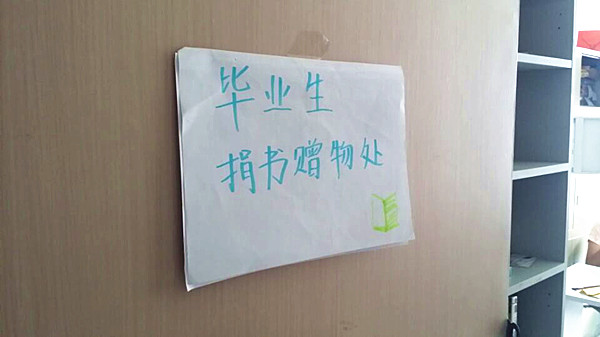 毕业生
捐书赠物处